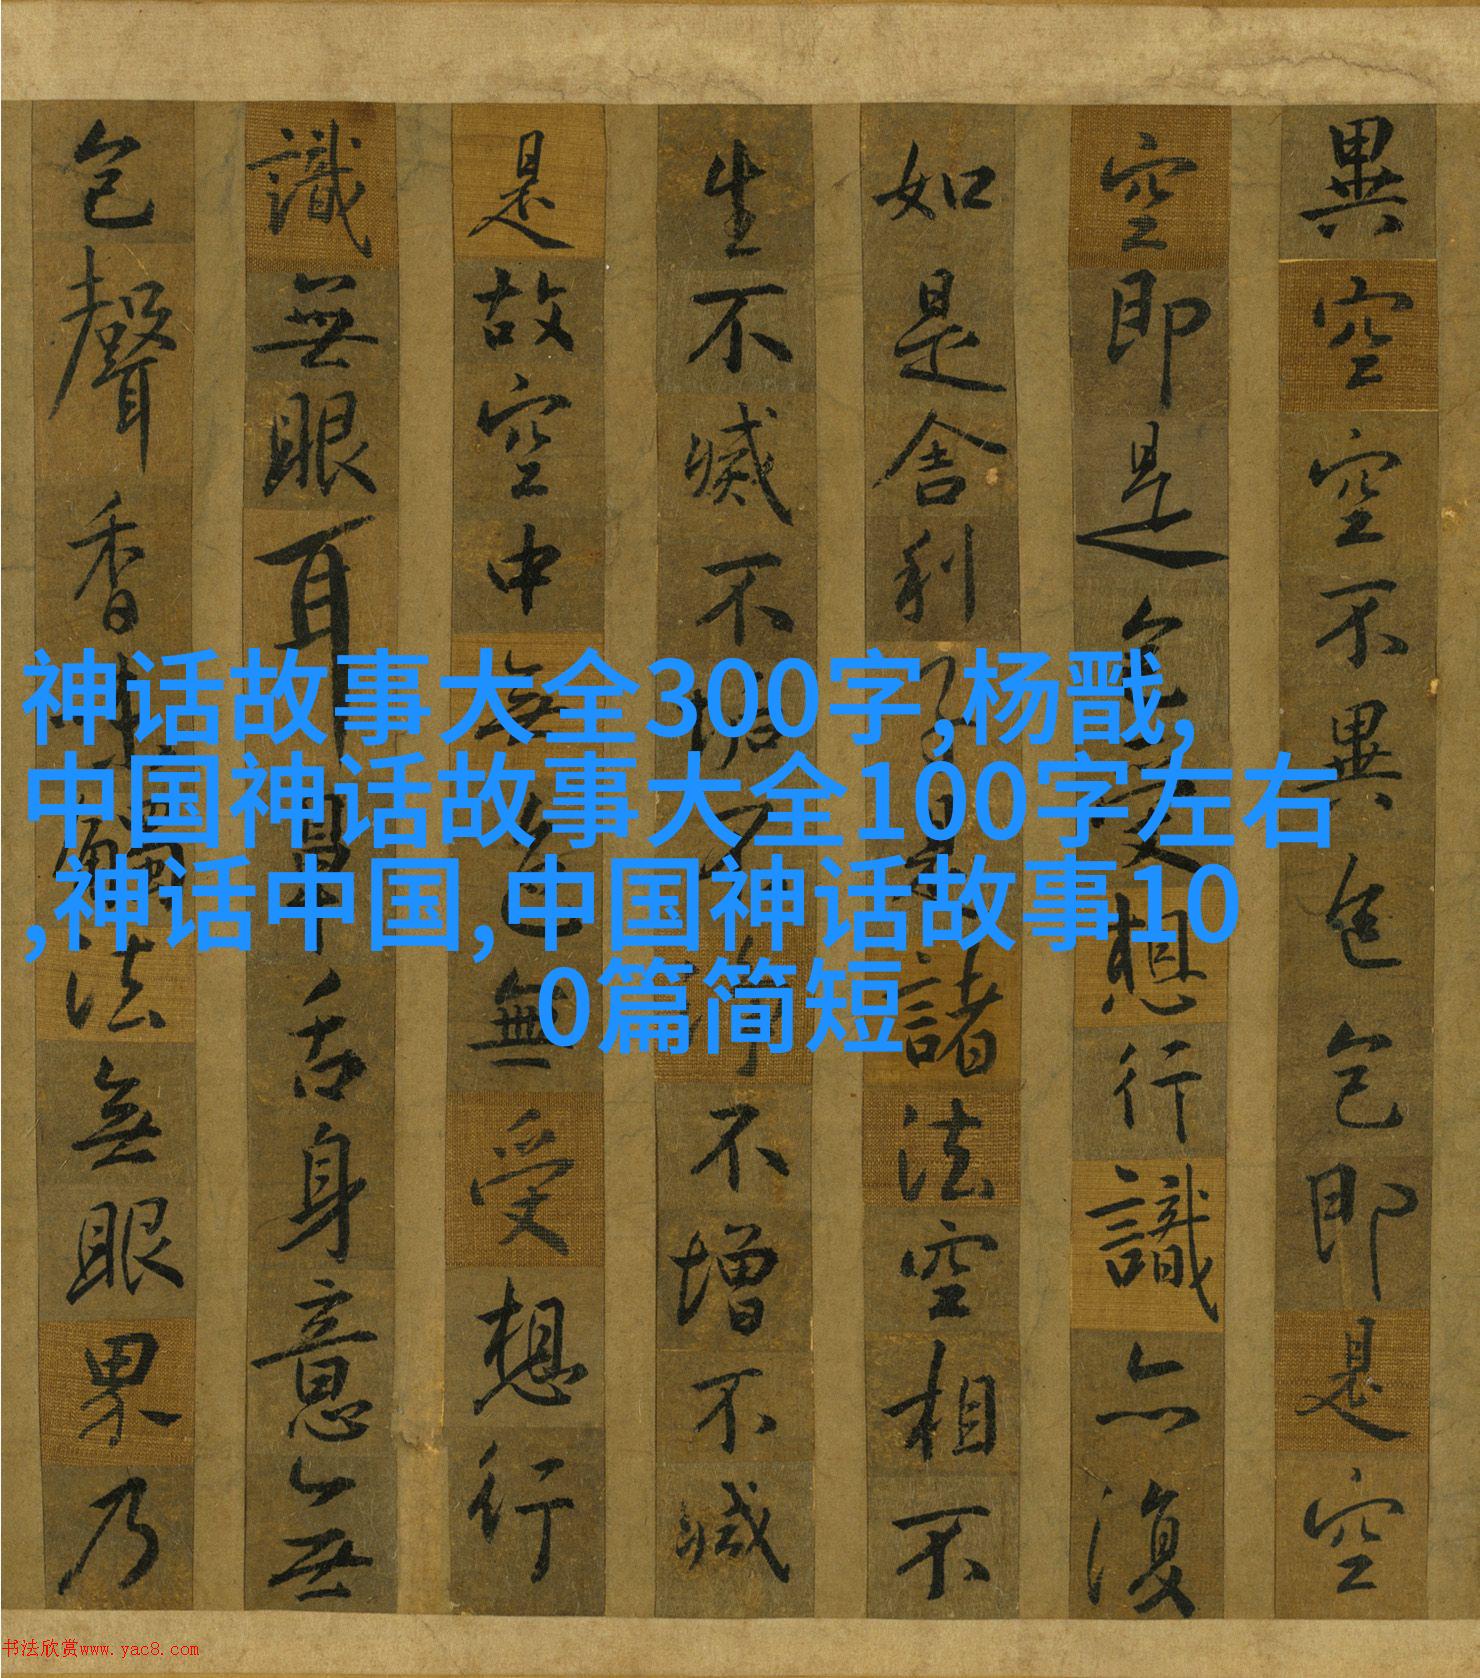 異空空不異色色即是空
空即是色受想行識亦復
如是舍利子是諸法空相不
生不滅不垢不淨不增不減
是故空中無色無受想行
識無眼耳鼻舌身意無
色聲香味觸法無眼界乃
神话故事大全300字,杨戬,
中国神话故事大全100字左右
,神话中国,中国神话故事10
0篇简短
书法欣赏www.yac8.com